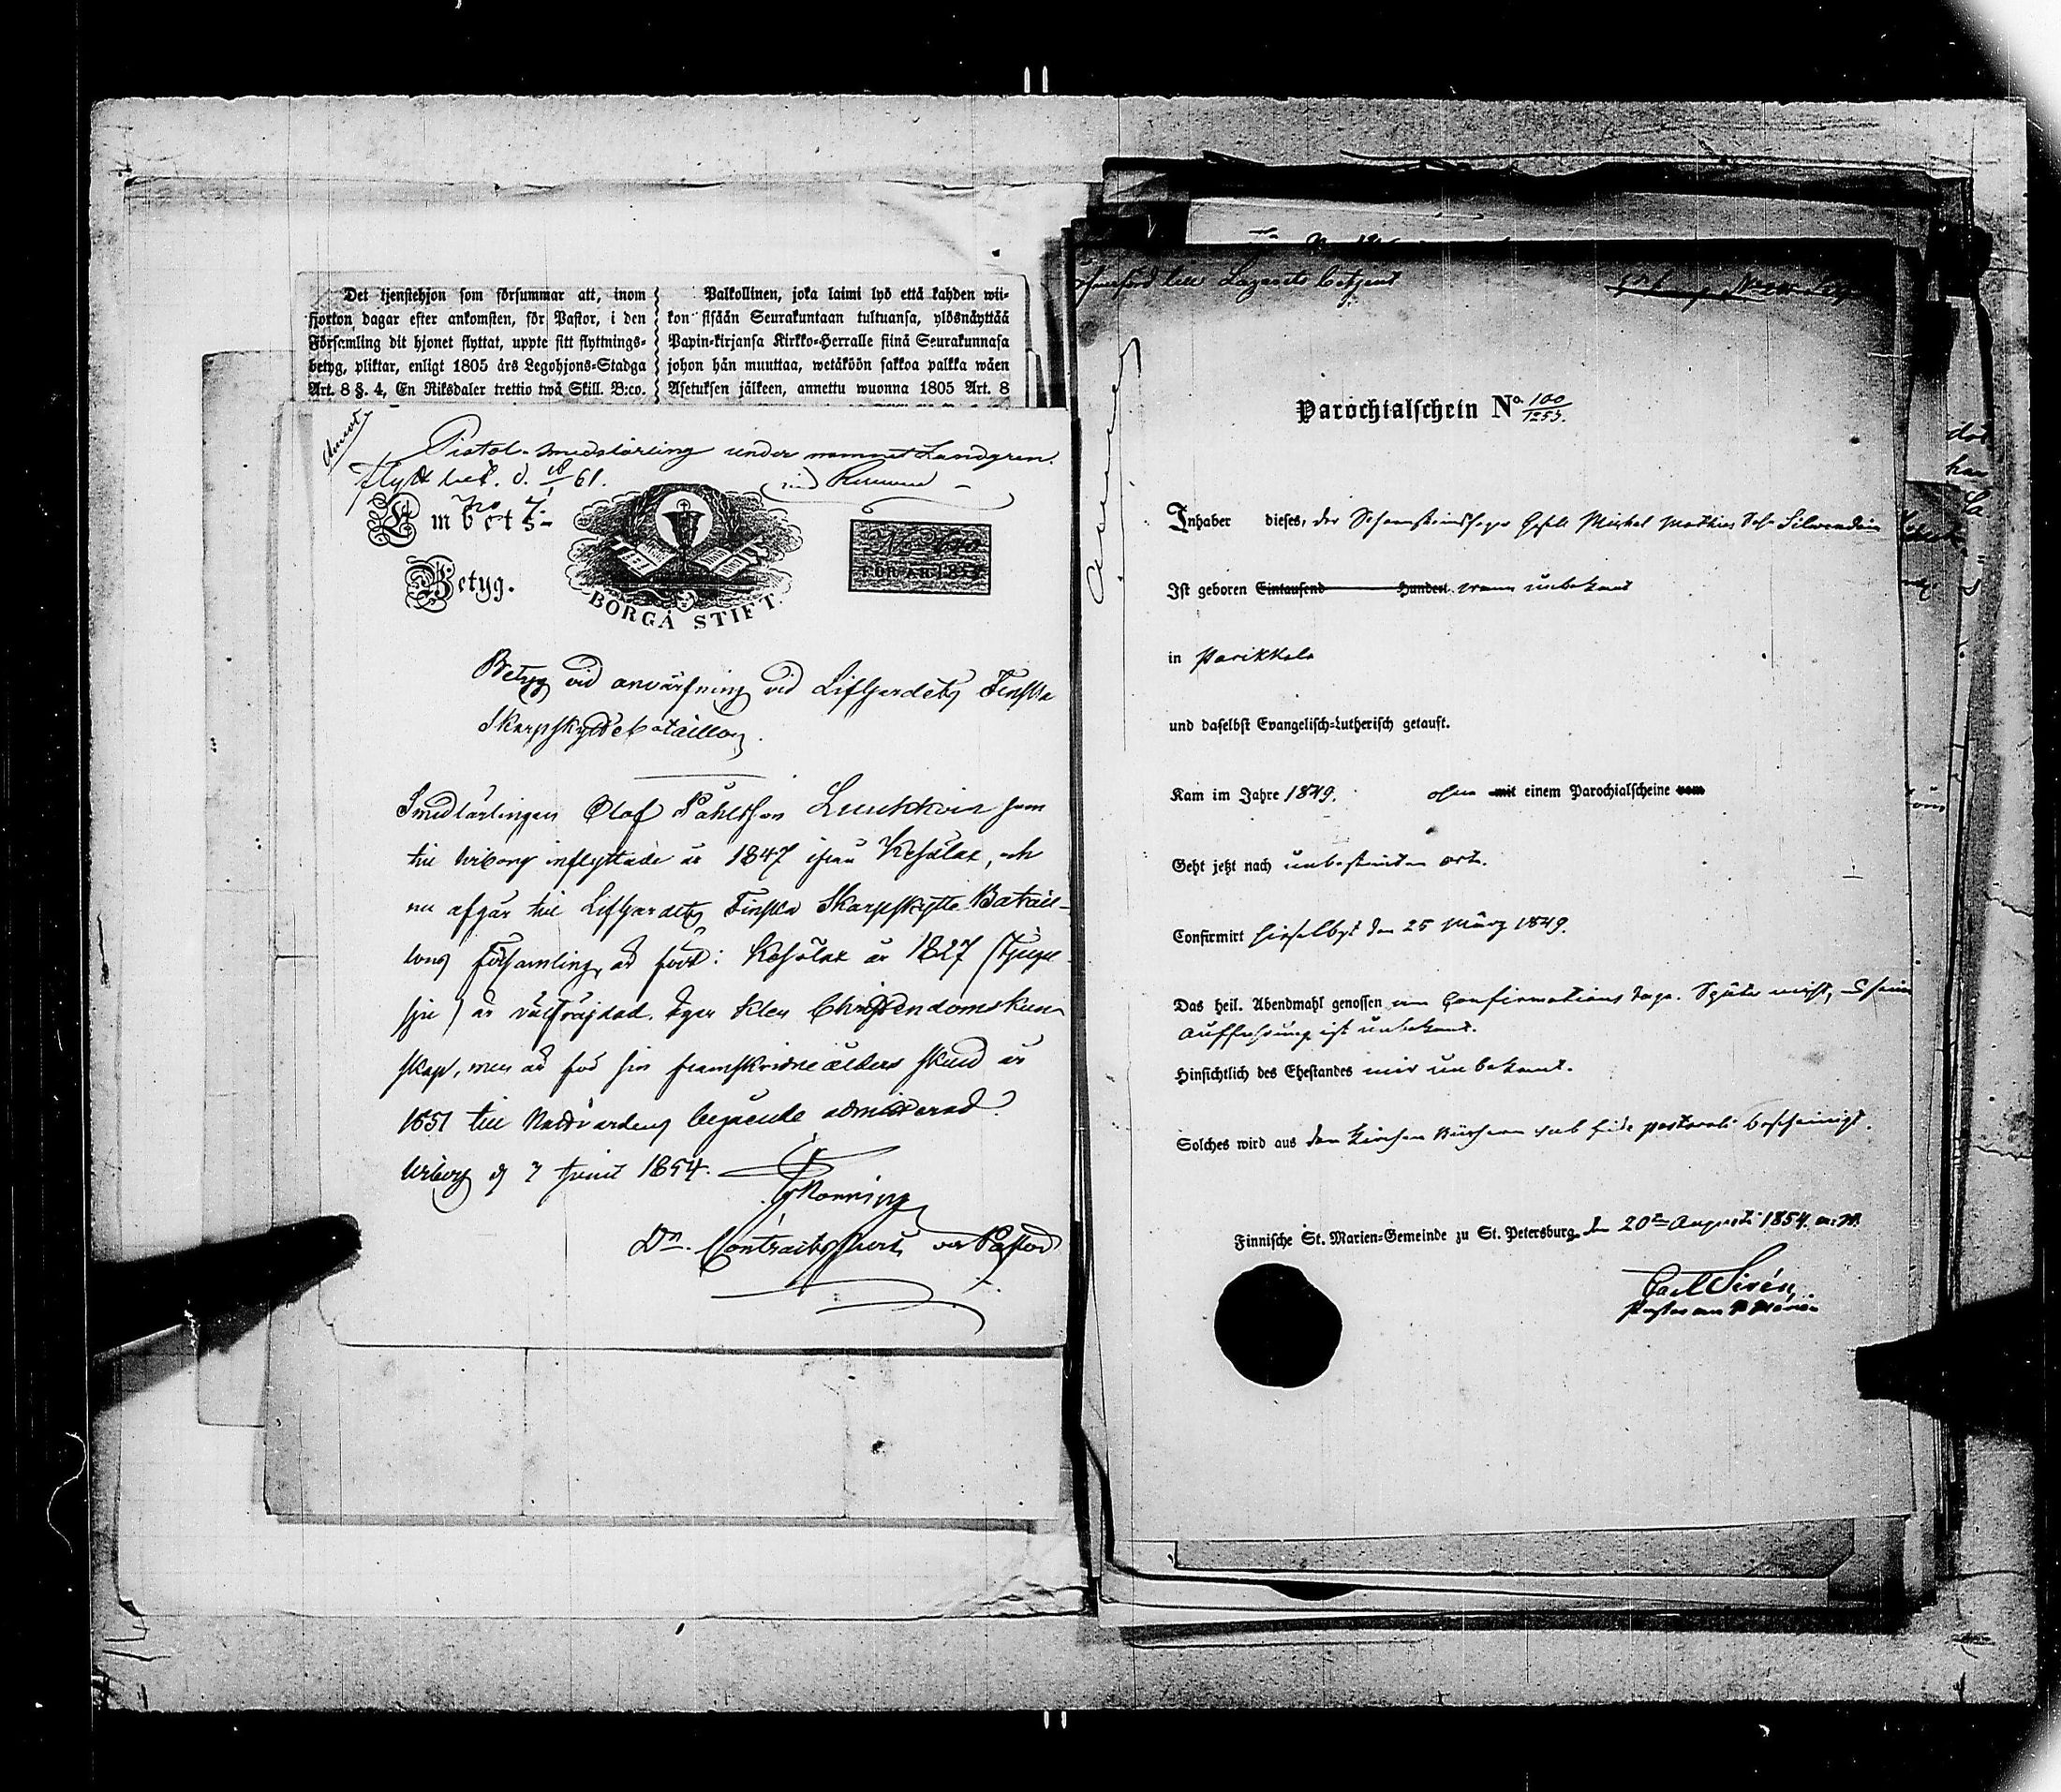 Det tjenstehjon som försummar att, inom
Hjorton dagar efter ankomsten, för Pastor, i den
Församling dit hjonet flyttat, uppte sitt flyttnings-
betyg, pliktar, enligt 1805 års Legohjons-Stadga
Art. 8 §. 4, En Riksdaler trettio twå Skill. B:co.
Palkollinen, joka laimi lyö että kahden wii-
kon sisään Seurakuntaan tultuansa, ylösnäyttää
Papin-kirjansa Kirkko-Herralle siinä Seurakunnasa
johon hän muuttaa, wetäköön sakkoa palkka wäen
Asetuksen jälkeen, annettu wuonna 1805 Art. 8
Pistol-smedslärling under namnet Landgren.
Flytt bet. d. 61.
No 7.
Embets-
Betyg.
BORGÅ STIFT.
No
FÖR ÅR 185
Betyg vid anvärfning vid Lifgardets Finska
Skarpskyttebataillon.
Smedlärlingen Olof Påhlsson Luukkoin som
till Wiborg inflyttade år 1847 ifrån Kesälax, och
nu afgår till Lifgardets Finska Skarpskytte Batail-
lons församling, är född i Kesälax år 1827 (tjugu
sju) är välfräjdad. Eger klen Christendomskun
skap, men är för sin framskridne ålders skuld år
1851 till Nattvardens begående admitterad.
Wiborg d 7 Junii 1854.
Dn. Contractsprost och Pastor
till Lazarets betjent
Parochialschein No. 100/1253.
Inhaber dieses, der Schornsteinfeger Gesell Michel Mathias Sohn Silwendoin
Ist geboren Eintausend Hundert wann unbekannt
in Parikkala
und daselbst Evangelisch-Lutherisch getauft.
Kam im Jahre 1849. ohne mit einem Parochialscheine vom
Geht jetzt nach unbestimten Orte.
Confirmirt hieselbst den 25 März 1849.
Das heil. Abendmahl genossen am Confirmations tage. Später nicht, Seine
Aufführung ist unbekannt.
Hinsichtlich des Ehestandes mir unbekannt.
Solches wird aus den Kirchen Büchern sub fide pastorali bescheinigt.
Finnische St. Marien-Gemeinde zu St. Petersburg. den 20ten Augusti 1854.
Carl Sirén,
Pastor an St Marien